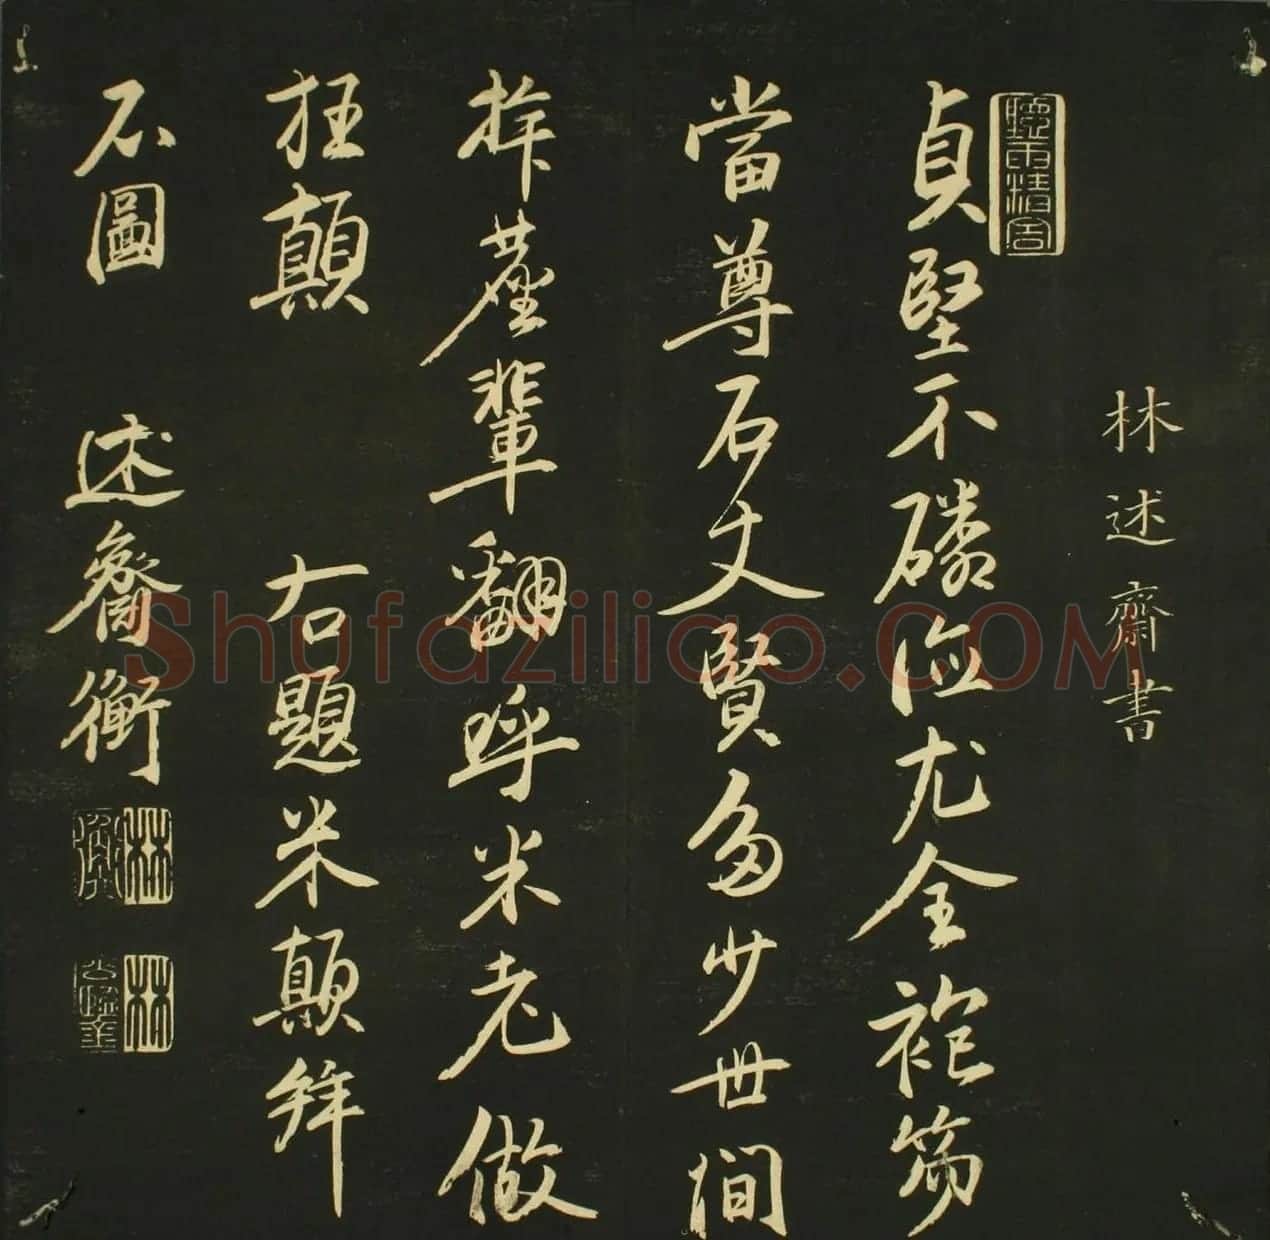 林述齋書
貞堅不磷德尤全袍笏
當尊石丈賢多少世間
拜塵輩翻呼米老做
狂顛 右題米顛拜
石圖 述齋衡
林衡
Shufaziliao.COM